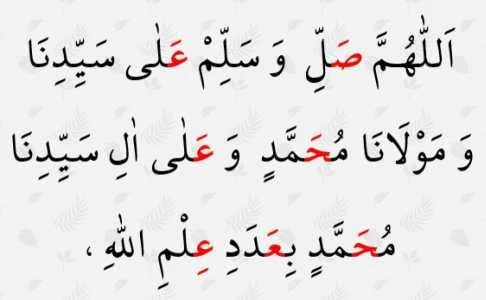 اَللّٰهُمَّ صَلِّ وَ سَلِّمْ عَلٰى سَيِّدِنَا
وَ مَوْلَانَا مُحَمَّدٍ وَ عَلٰى اٰلِ سَيِّدِنَا
مُحَمَّدٍ بِعَدَدِ عِلْمِ اللّٰهِ ،